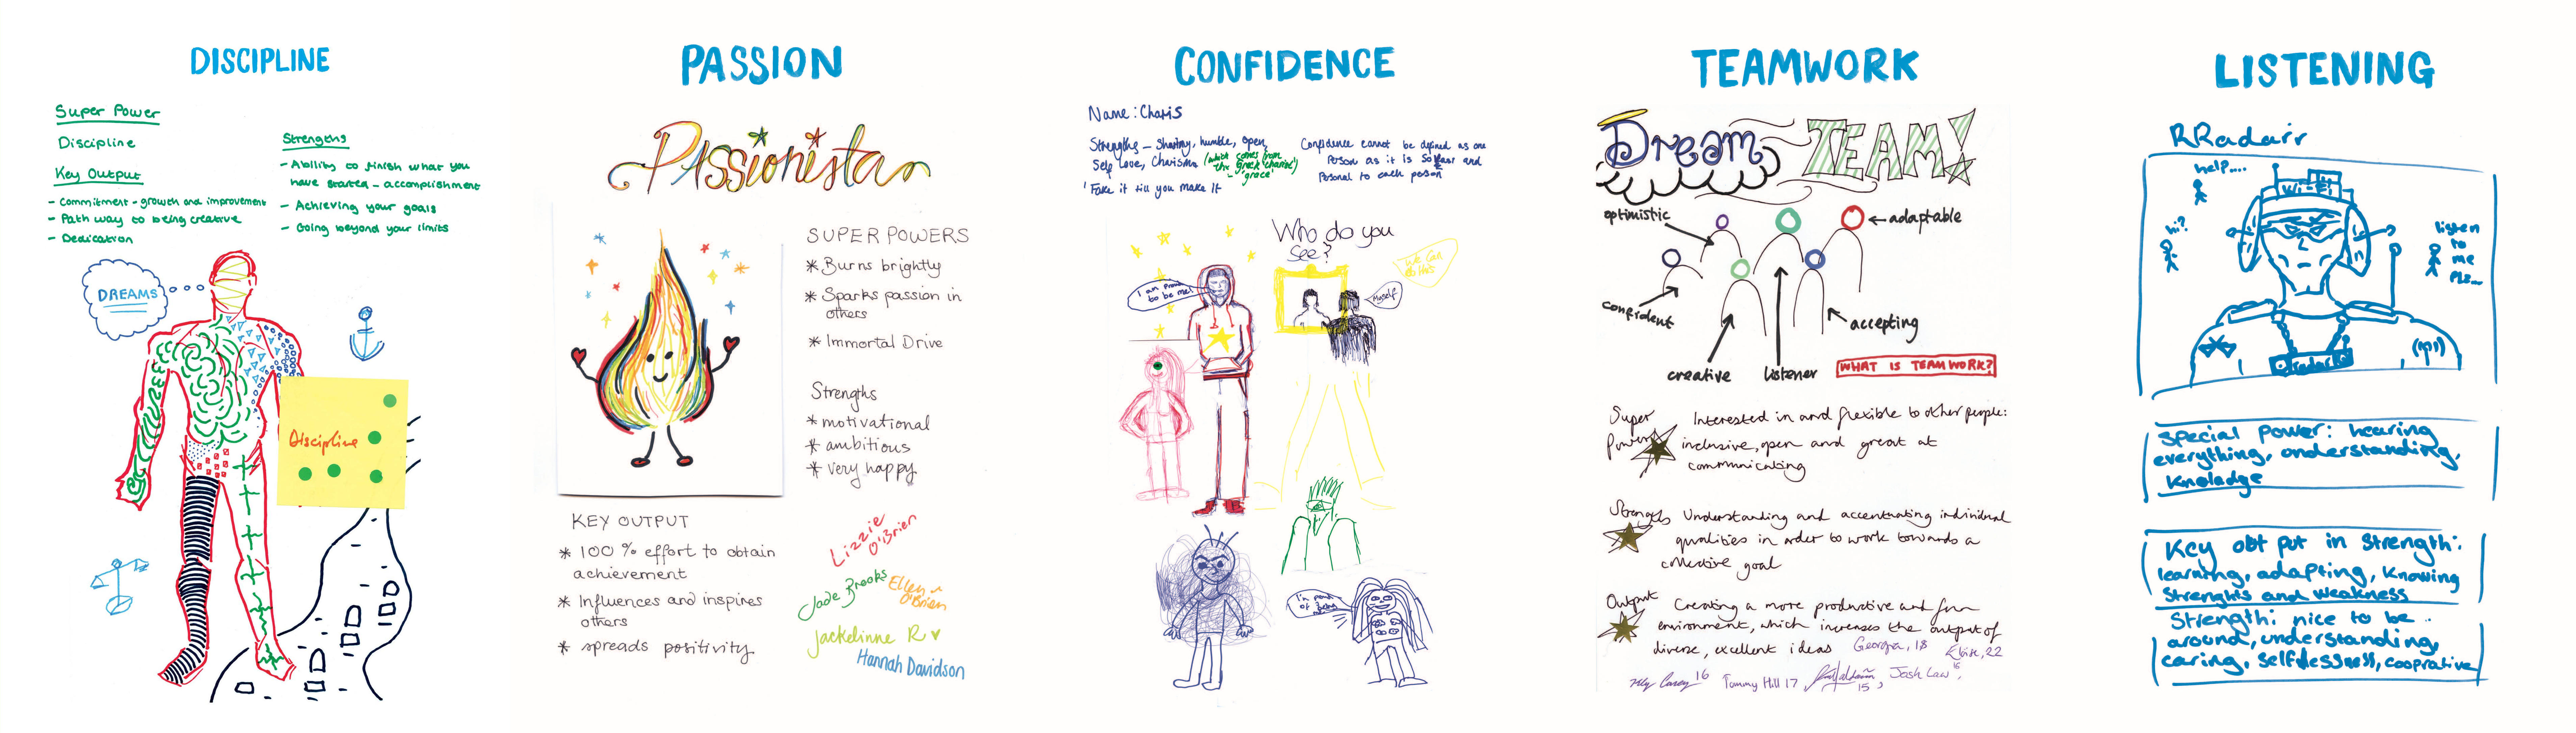 DISCIPLINE
Super Power
Discipline
Key Output
- Commitment - growth and improvement
- Path way to being creative
- Dedication
Strengths
- Ability to finish what you
have started - accomplishment
- Achieving your goals
- Going beyond your limits
DREAMS
Discipline
PASSION
PASSionista
SUPER POWERS
* Burns brightly
* Sparks passion in
others
* Immortal Drive
Strengths
* motivational
* ambitious
* very happy
KEY OUTPUT
* 100% effort to obtain
achievement
* Influences and inspires
others
* spreads positivity
Lizzie
O'Brien
Jade Brooks
Ellen
O'Brien
Jackelinne R
Hannah Davidson
CONFIDENCE
Name: Charis
Strengths - Sharing, humble, open,
Self love, Charisma (which comes from
the Greek 'charis')
- 'grace'
'Fake it till you make it
Confidence cannot be defined as one
Person as it is so and
Personal to each person
Who do you
see?
We can
do this
I am proud
to be me!
Myself
I'm proud
of being
TEAMWORK
Dream TEAM!
optimistic
adaptable
confident
accepting
creative
listener
WHAT IS TEAMWORK?
Super
Powers
Interested in and flexible to other people:
inclusive, open and great at
communicating
Strengths
Understanding and accentuating individual
qualities in order to work towards a
collective goal
Output
Creating a more productive and fun
environment, which increases the output of
diverse, excellent ideas
Georgia, 18
Eloise, 22
16
Tommy Hill 17
15,
Josh Law 16
LISTENING
RRadarr
help....
Wi-Fi
hi?
listen
to
me
Pls...
radar
Special power: hearing
everything, understanding,
Knoladge
Key obt put in strength:
learning, adapting, Knowing
Strenghts and weakness
Strength: nice to be
around, understanding,
caring, selfdlessness, cooprative